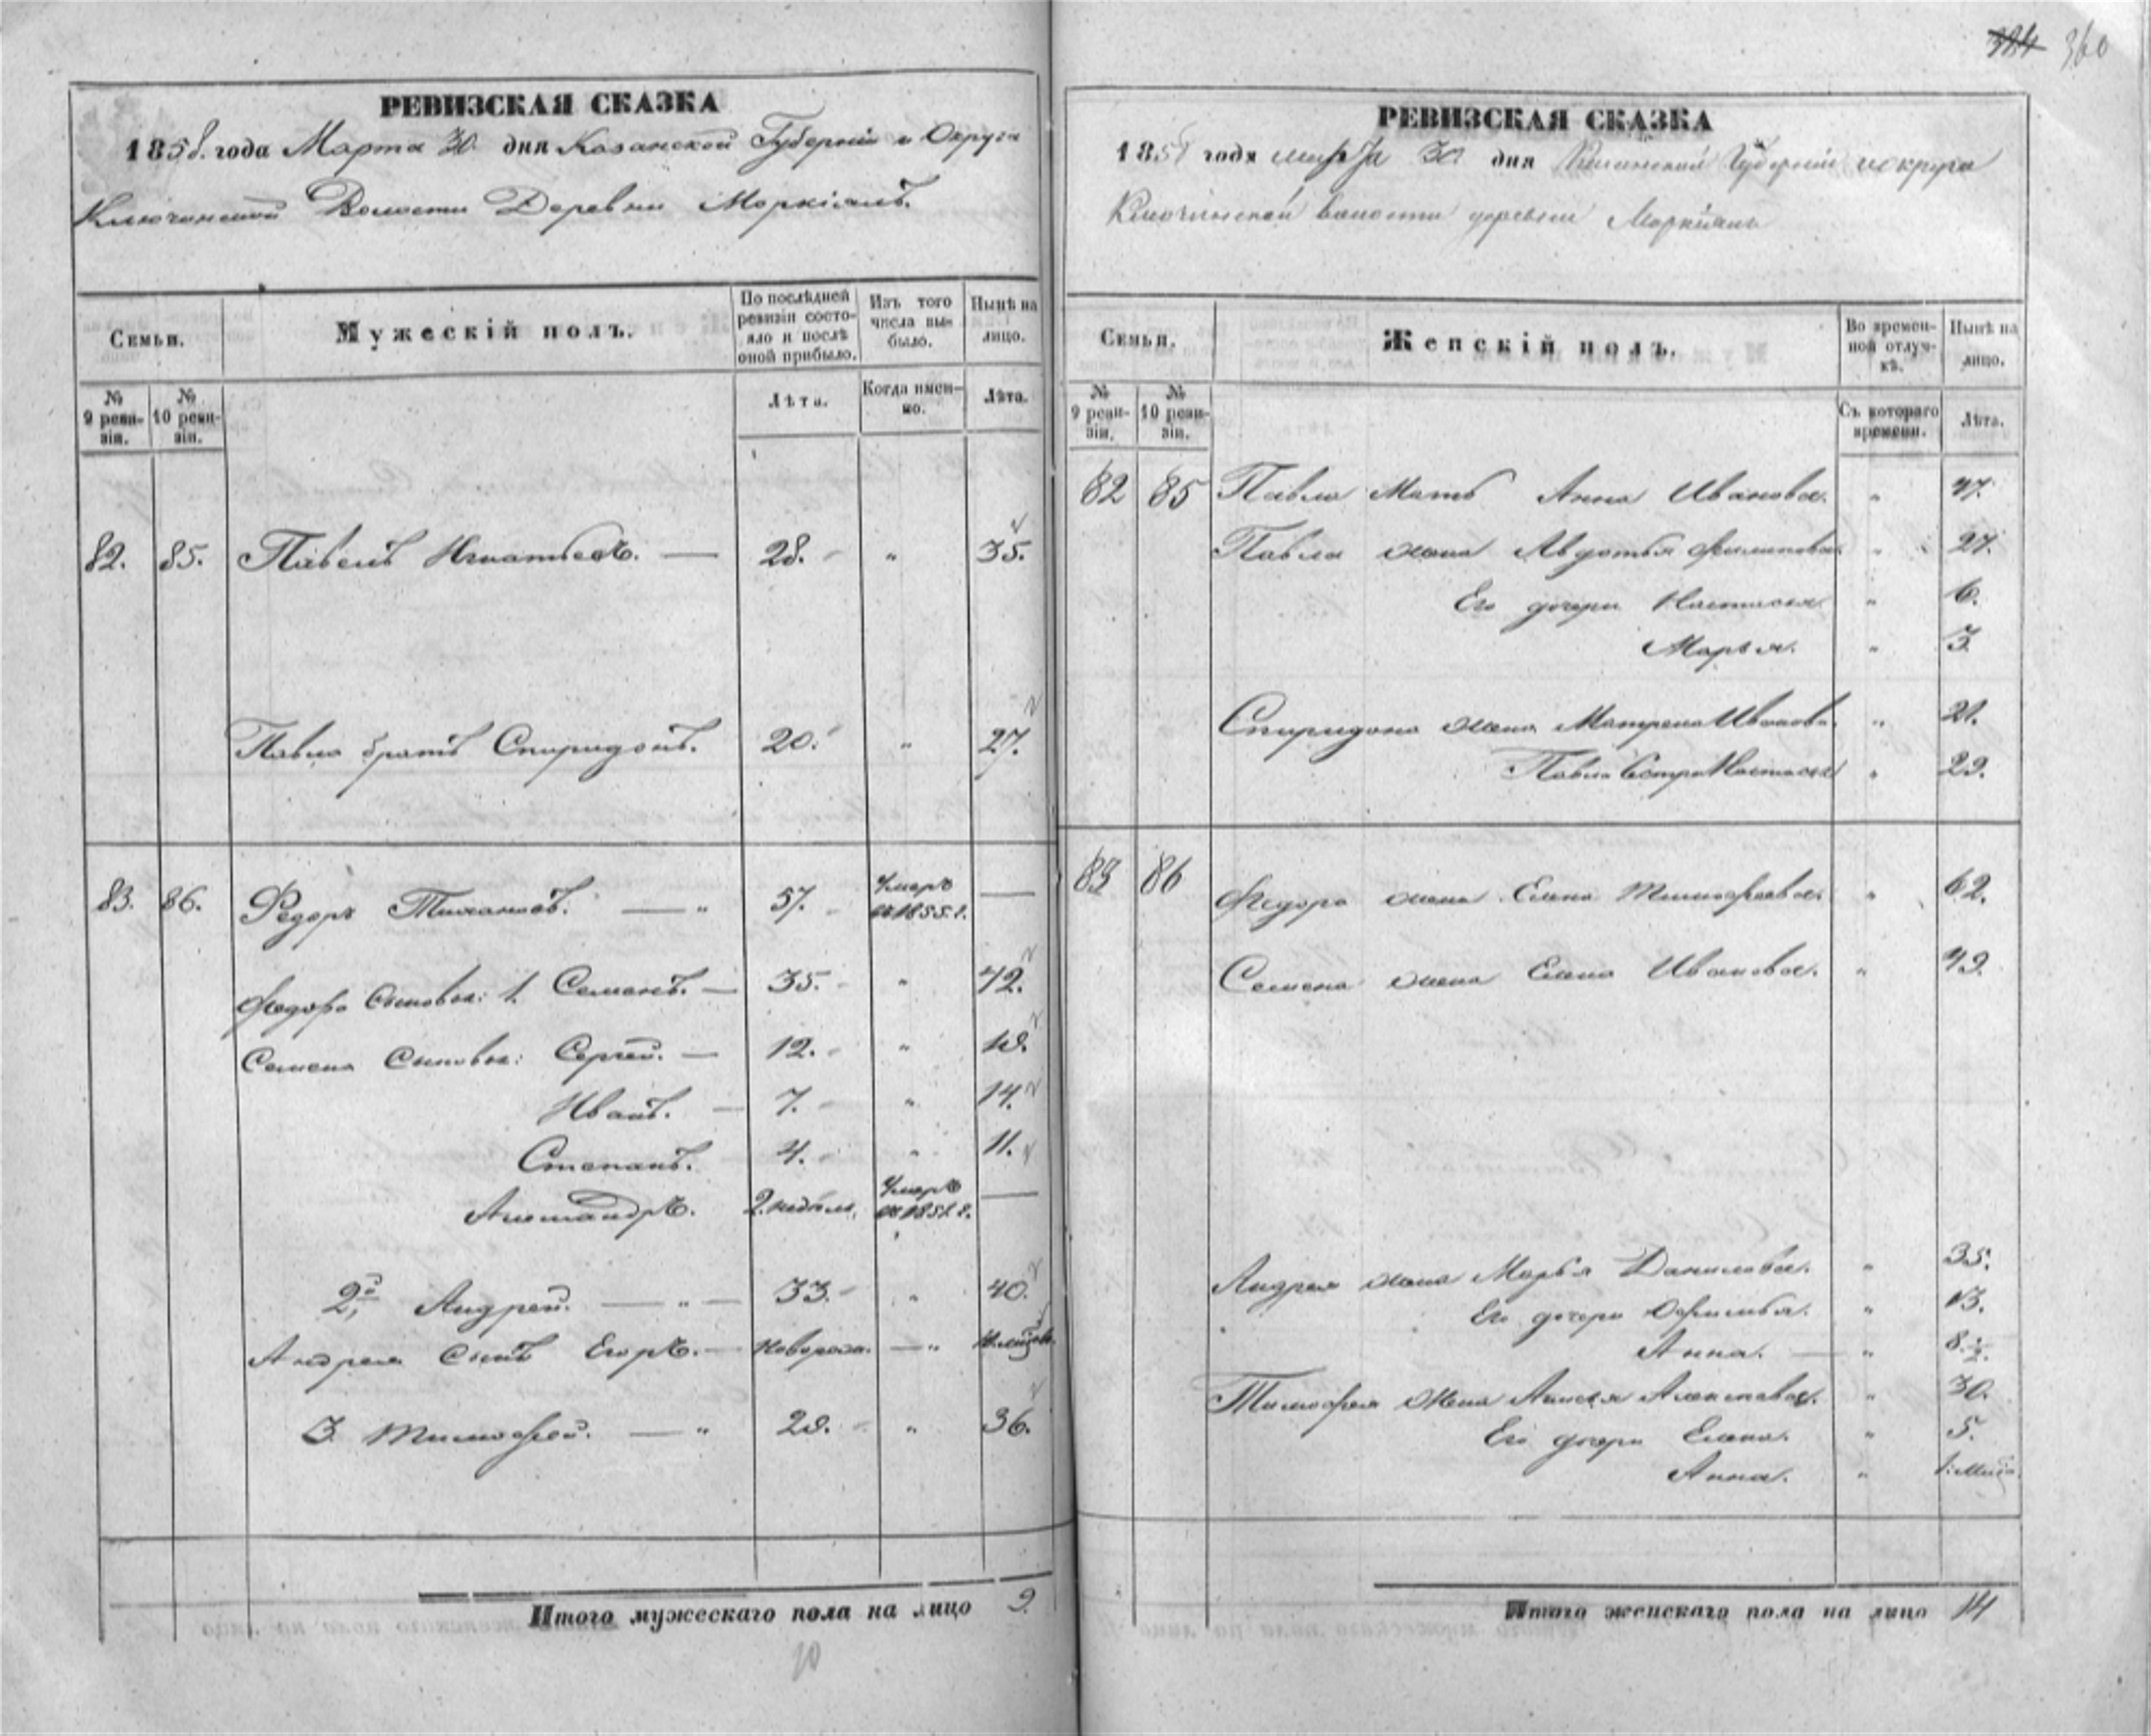 384 360
РЕВИЗСКАЯ СКАЗКА
1858 года Марта 30 дня Казанской Губернiи и Округа
Ключинской Волости Деревни Моркiямъ.
Семьи.
Мужескiй полъ.
По послѣдней ревизiи состояло и послѣ оной прибыло.
Изъ того числа выбыло.
Нынѣ на лицо.
№ 9 ревизiи.
№ 10 ревизiи.
Лѣта.
Когда именно.
Лѣта.
82. 85. Павелъ Игнатьевъ. — 28. " 35.
Павла братъ Спиридонъ. 20. " 27.
83. 86. Федоръ Тихановъ. — " 57. Умеръ въ 1855 г. —
Федора Сыновья: 1. Семенъ. — 35. " 42.
Семена Сыновья: Сергей. — 12. " 19.
Иванъ. — 7. " 14.
Степанъ. 4. " 11.
Александръ. 2 недели. Умеръ въ 1851 г. —
2й, Андрей. — " — 33. " 40.
Андрея Сынъ Егоръ. — Новорож. — "
3 Тимофей. — " 29. " 36.
Итого мужескаго пола на лицо 9.
10
РЕВИЗСКАЯ СКАЗКА
1858 года марта 30 дня Казанской Губернiи и округа
Ключинской волости деревни Моркiямъ
Семьи.
Женскiй полъ.
Во временной отлучкѣ.
Нынѣ на лицо.
№ 9 ревизiи.
№ 10 ревизiи.
Съ котораго времени.
Лѣта.
82 85 Павла Мать Анна Иванова. " 47.
Павла жена Авдотья Филипова " 27.
Его дочери Настасья " 6.
Марья. " 3
Спиридона жена Матрена Иванова. " 21.
Павла Сестра Настасья " 29.
83 86 Федора жена Елена Тимофеева. " 62.
Семена жена Елена Иванова. " 49.
Андрея жена Марья Данилова. " 35.
Его дочери " 13.
Анна. — " 8 1/2.
Тимофея жена Алексеева. " 30.
Его дочери Елена. " 5.
Анна. "
Итого женскаго пола на лицо 14